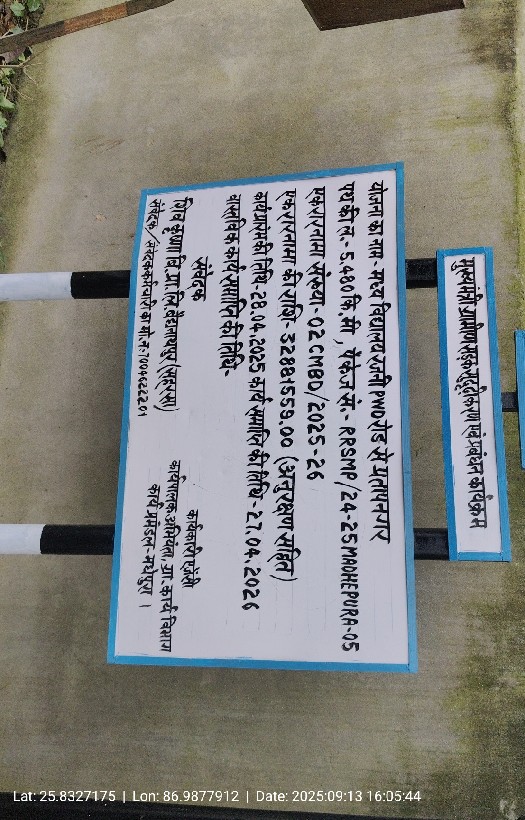 मुख्यमंत्री ग्रामीण सड़क सुदृढ़ीकरण एवं प्रबंधन कार्यक्रम
योजना का नाम- मध्य विद्यालय रजनी PWD रोड से प्रतापनगर
पथ की ल.- 5.480 कि.मी, पैकेज सं.- RRSMP/24-25 MADHEPURA-05
एकरारनामा संख्या- 02 CMBD/2025-26
एकरारनामा की राशि- 32881559.00 (अनुरक्षण सहित)
कार्य प्रारंभ की तिथि-28.04.2025 कार्य समाप्ति की तिथि-27.04.2026
वास्तविक कार्य समाप्ति की तिथि-
संवेदक
शिव कृष्णा बि.प्रा.लि. बैजनाथपुर (सहरसा)
संवेदक/संवेदककर्मचारी का मो.नं.:7004622201
कार्यकारी एजेंसी
कार्यपालक अभियंता, ग्रा. कार्य विभाग
कार्य प्रमंडल- मधेपुरा ।
Lat: 25.8327175 | Lon: 86.9877912 | Date: 2025:09:13 16:05:44